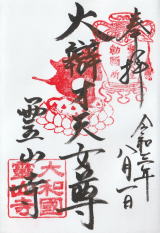 奉拝
令和三年
八月一日
大辯才天女尊
霊山寺
大和國
霊山寺